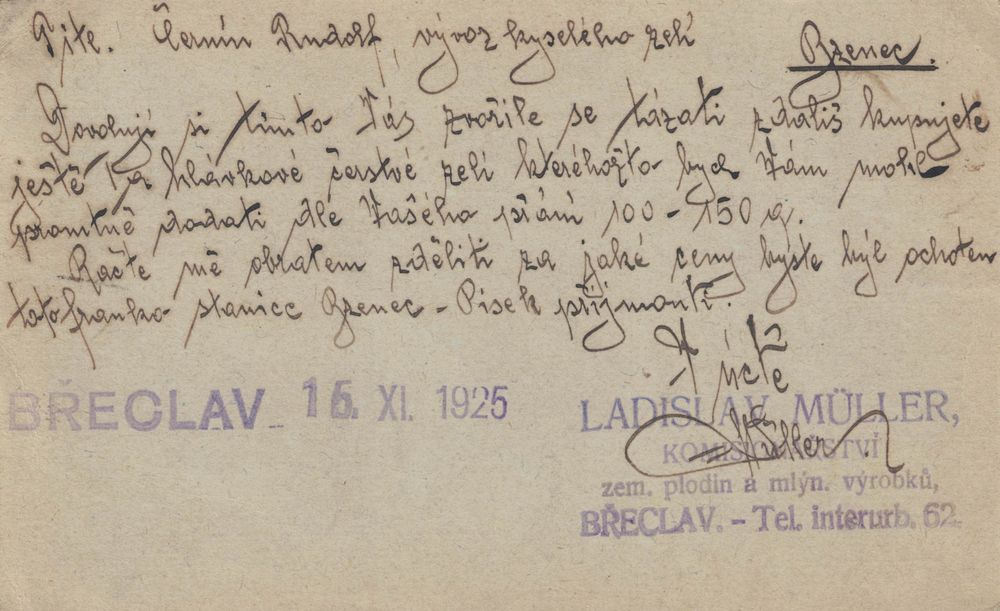 Pjte. Čermín Rudolf, vývoz kyselého zelí Bzenec.
Dovoluji si tímto Vás zdvořile se tázati zdaliž kupujete
ještě hlávkové čerstvé zelí kteréhožto bych Vám mohl
promtně dodati dle Vašeho přání 100 - 150 q.
Račte mě obratem zděliti za jaké ceny byste býl ochoten
toto franko stanice Bzenec - Písek přijmouti.
V úctě
BŘECLAV 16. XI. 1925
LADISLAV MÜLLER,
Müller
KOMISIONÁŘSTVÍ
zem. plodin a mlýn. výrobků,
BŘECLAV. - Tel. interurb. 62.